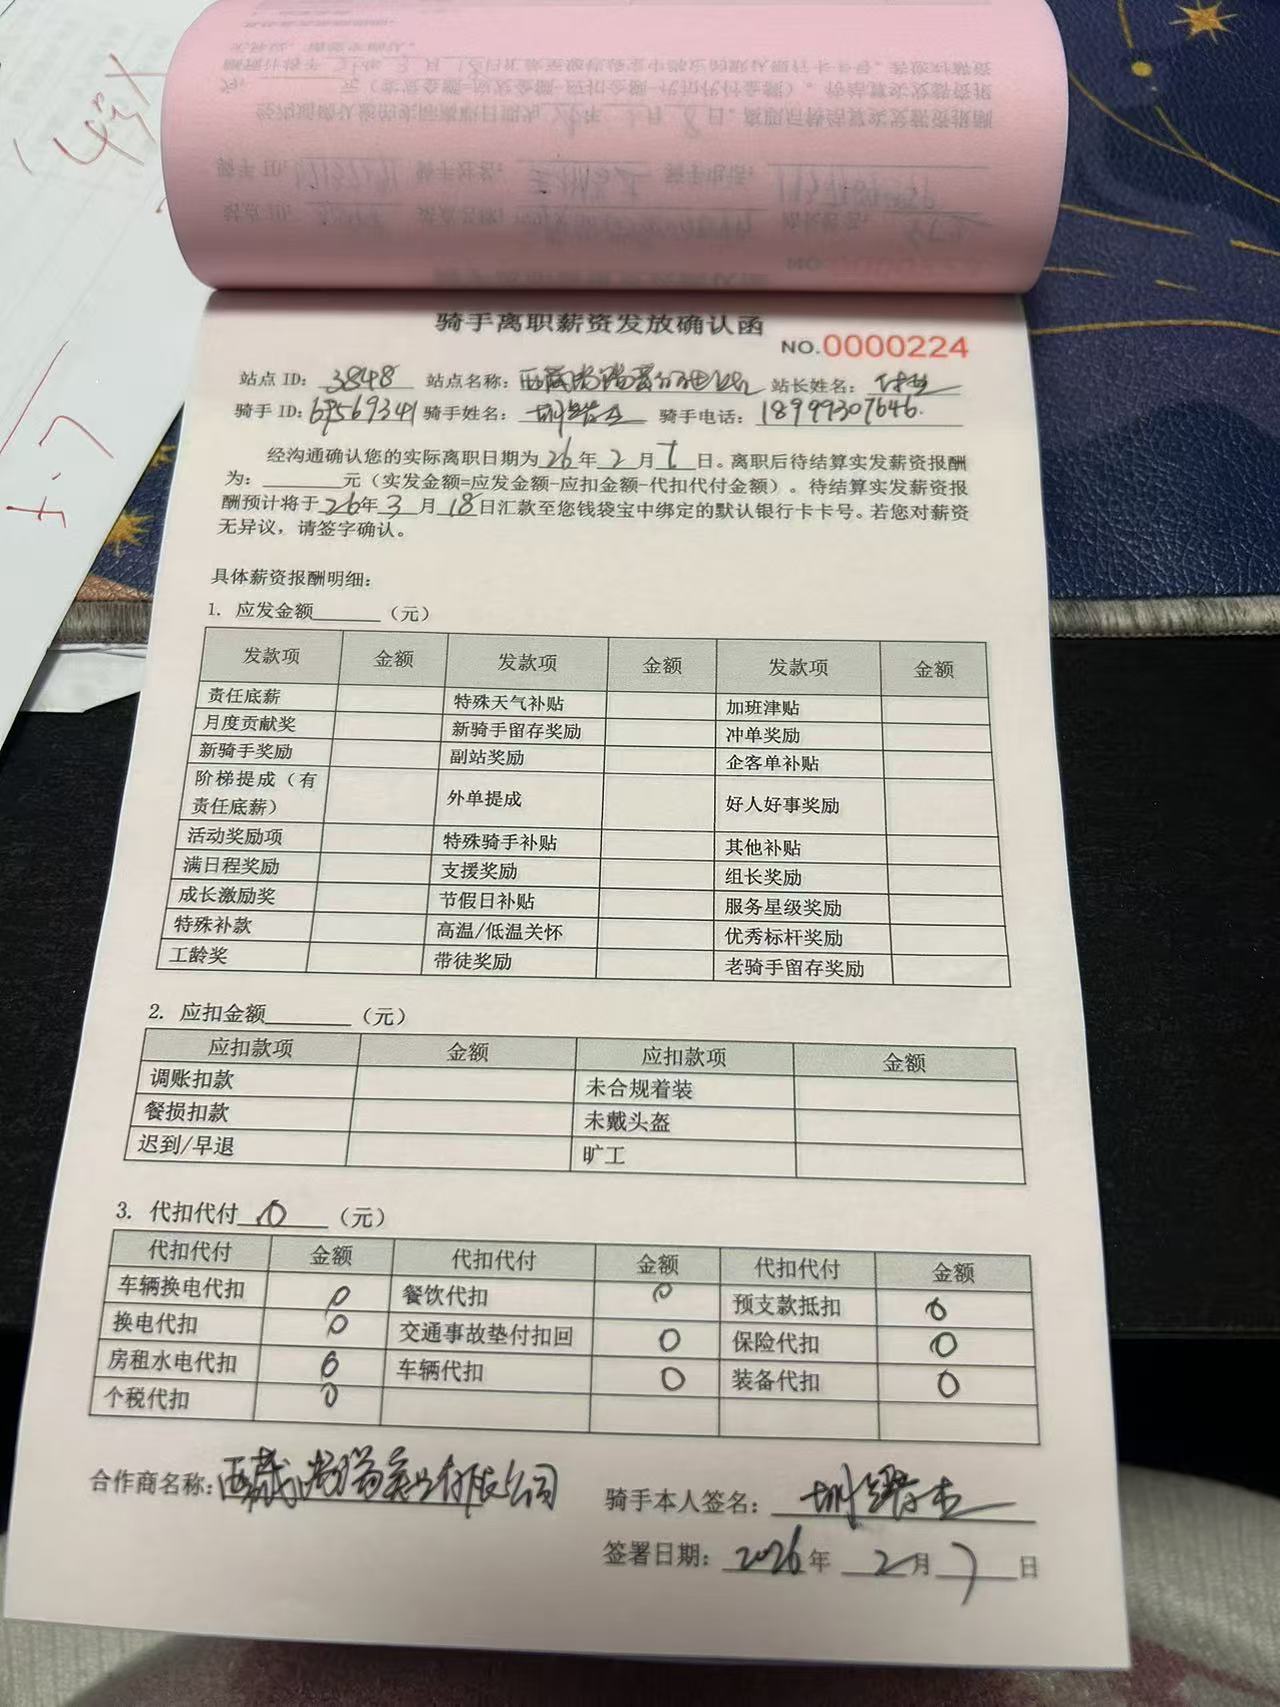 骑手离职薪资发放确认函
NO.0000224
站点 ID: 3848 站点名称: 站长姓名:
骑手 ID: 69569341 骑手姓名: 骑手电话: 18999307646
经沟通确认您的实际离职日期为 26 年 2 月 7 日。离职后待结算实发薪资报酬
为: 元（实发金额=应发金额-应扣金额-代扣代付金额）。待结算实发薪资报
酬预计将于 26 年 3 月 18 日汇款至您钱袋宝中绑定的默认银行卡卡号。若您对薪资
无异议，请签字确认。
具体薪资报酬明细:
1. 应发金额 （元）
发款项 金额 发款项 金额 发款项 金额
责任底薪 特殊天气补贴 加班津贴
月度贡献奖 新骑手留存奖励 冲单奖励
新骑手奖励 副站奖励 企客单补贴
阶梯提成（有责任底薪） 外单提成 好人好事奖励
活动奖励项 特殊骑手补贴 其他补贴
满日程奖励 支援奖励 组长奖励
成长激励奖 节假日补贴 服务星级奖励
特殊补款 高温/低温关怀 优秀标杆奖励
工龄奖 带徒奖励 老骑手留存奖励
2. 应扣金额 （元）
应扣款项 金额 应扣款项 金额
调账扣款 未合规着装
餐损扣款 未戴头盔
迟到/早退 旷工
3. 代扣代付 0 （元）
代扣代付 金额 代扣代付 金额 代扣代付 金额
车辆换电代扣 0 餐饮代扣 0 预支款抵扣 0
换电代扣 0 交通事故垫付扣回 0 保险代扣 0
房租水电代扣 0 车辆代扣 0 装备代扣 0
个税代扣 0
合作商名称: 西藏 有限公司
骑手本人签名:
签署日期: 2026 年 2 月 7 日